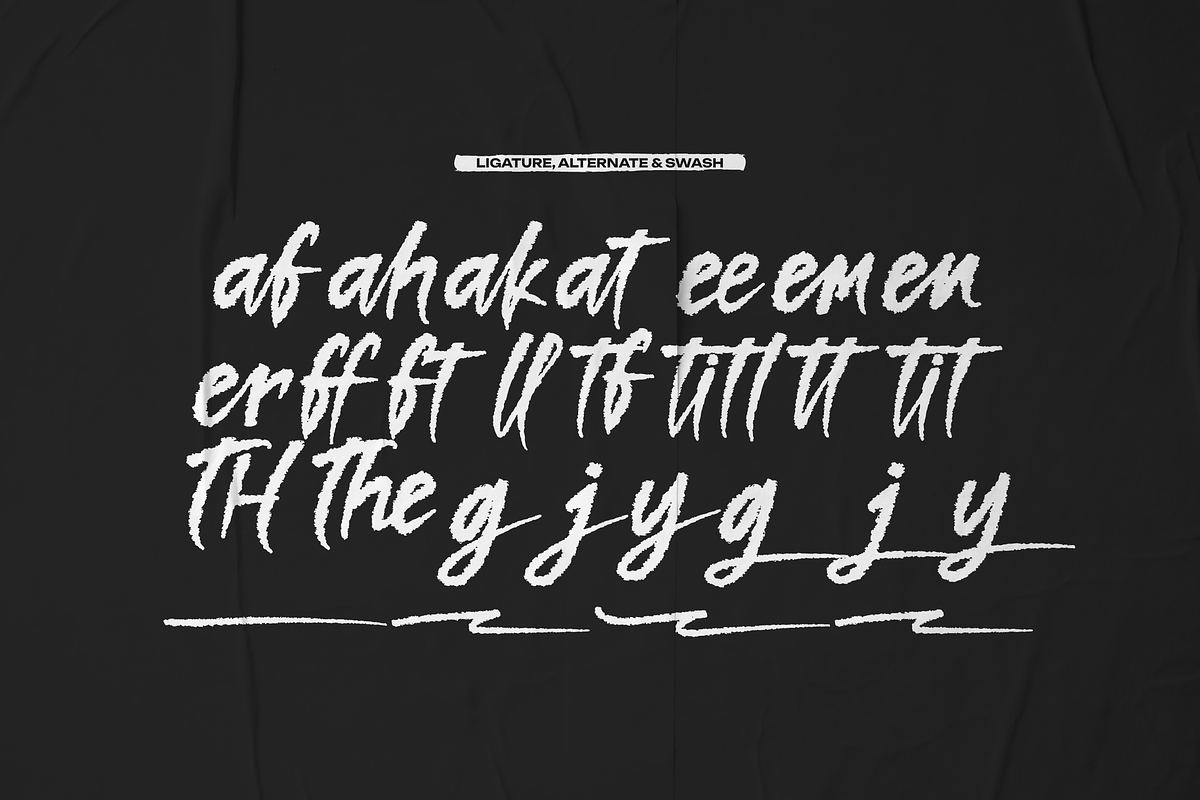 LIGATURE, ALTERNATE & SWASH
af ah ak at ee em en
er ff ft ll tf ti tl tt tit
TH The g j y g j y